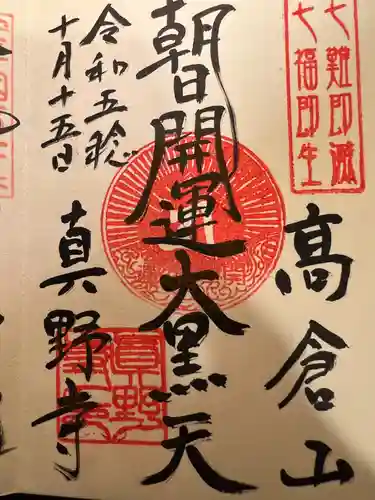 七難即滅
七福即生
高倉山
朝日開運大黒天
令和五稔
十月十五日
真野寺